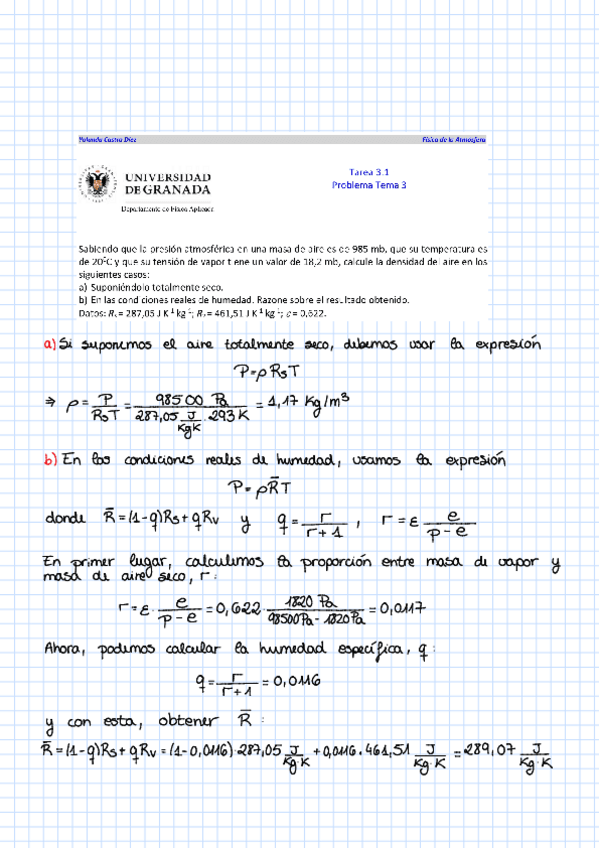 Yolanda Castro Díez Física de la Atmósfera
UNIVERSIDAD
DE GRANADA
Departamento de Física Aplicada
Tarea 3.1
Problema Tema 3
Sabiendo que la presión atmosférica en una masa de aire es de 985 mb, que su temperatura es
de 20ºC y que su tensión de vapor tiene un valor de 18,2 mb, calcule la densidad del aire en los
siguientes casos:
a) Suponiéndolo totalmente seco.
b) En las condiciones reales de humedad. Razone sobre el resultado obtenido.
Datos: Rs = 287,05 J K-1 kg-1; Rv = 461,51 J K-1 kg-1; ε = 0,622.
a) Si suponemos el aire totalmente seco, debemos usar la expresión
P=ρRsT
⇒ ρ = P/(RsT) = 98500 Pa/(287,05 J/KgK · 293 K) = 1,17 Kg/m³
b) En las condiciones reales de humedad, usamos la expresión
P = ρR̄T
donde R̄ = (1-q)Rs + qRv y q = r/(r+1) , r = ε e/(p-e)
En primer lugar, calculemos la proporción entre masa de vapor y
masa de aire seco, r:
r = ε · e/(p-e) = 0,622 · 1820 Pa/(98500Pa - 1820Pa) = 0,0117
Ahora, podemos calcular la humedad específica, q:
q = r/(r+1) = 0,0116
y con esta, obtener R̄ :
R̄ = (1-q)Rs + qRv = (1-0,0116)·287,05 J/Kg·K + 0,0116·461,51 J/Kg·K = 289,07 J/Kg·K